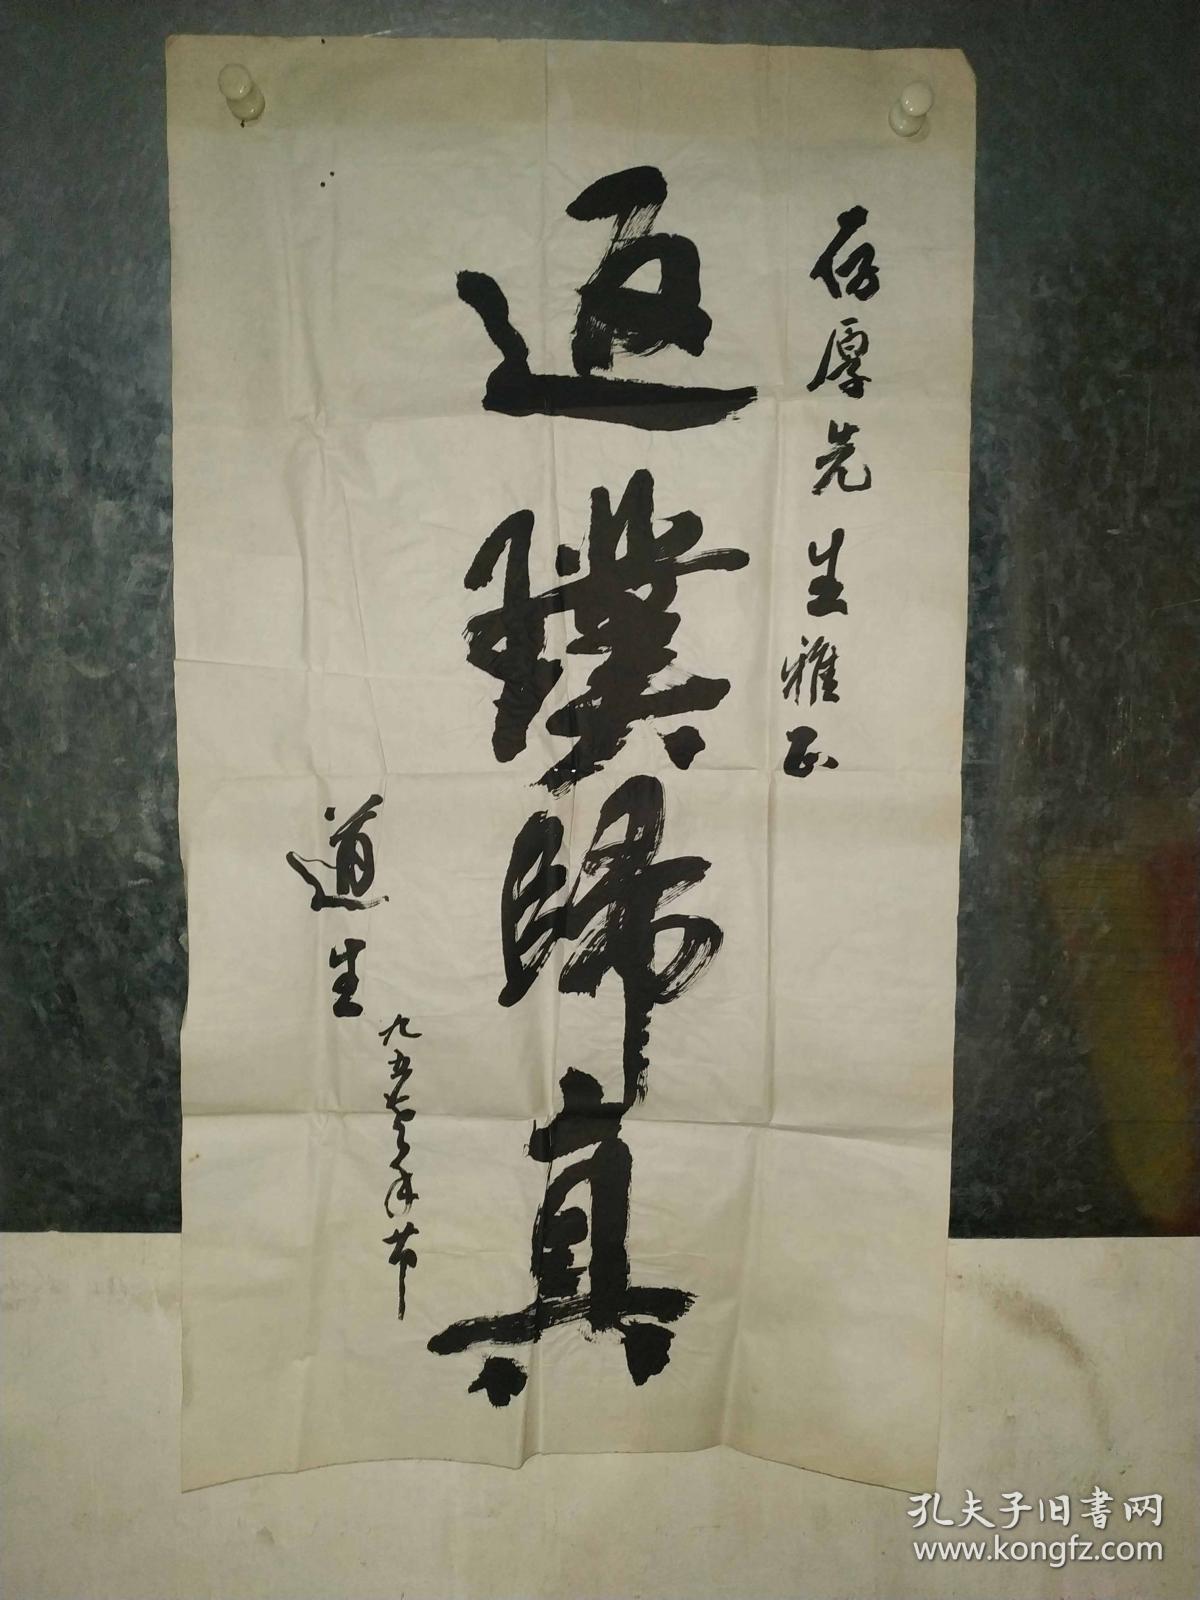 厚先生雅正
返璞歸真
道生
九五年
孔夫子旧书网
www.kongfz.com